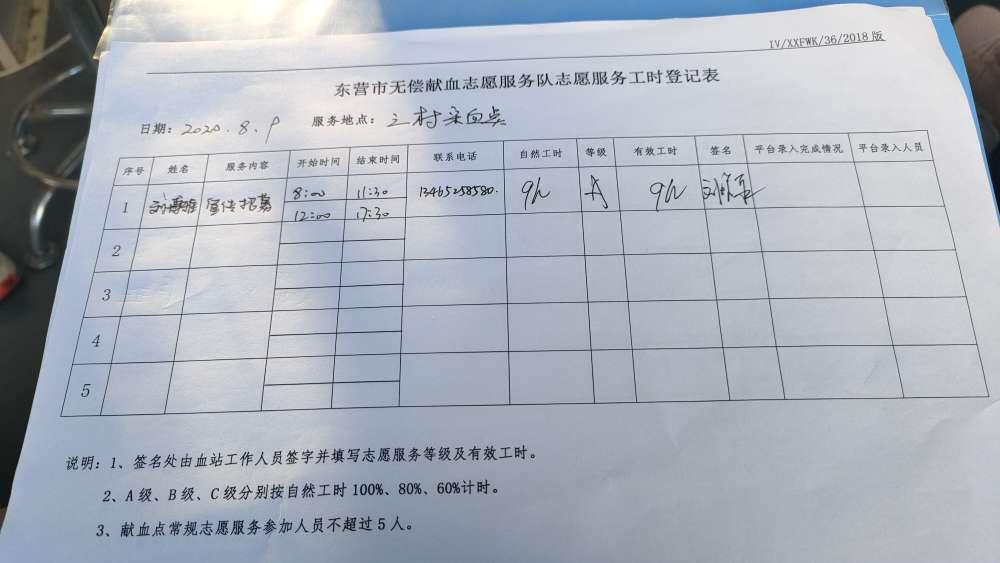 IV/XXFWK/36/2018版
东营市无偿献血志愿服务队志愿服务工时登记表
日期：2020.8.9 服务地点：村采血点
序号 姓名 服务内容 开始时间 结束时间 联系电话 自然工时 等级 有效工时 签名 平台录入完成情况 平台录入人员
1 刘 宣传招募 8:00 11:30 13465258580. 9h A 9h 刘
12:00 17:30
2
3
4
5
说明：1、签名处由血站工作人员签字并填写志愿服务等级及有效工时。
2、A级、B级、C级分别按自然工时100%、80%、60%计时。
3、献血点常规志愿服务参加人员不超过5人。